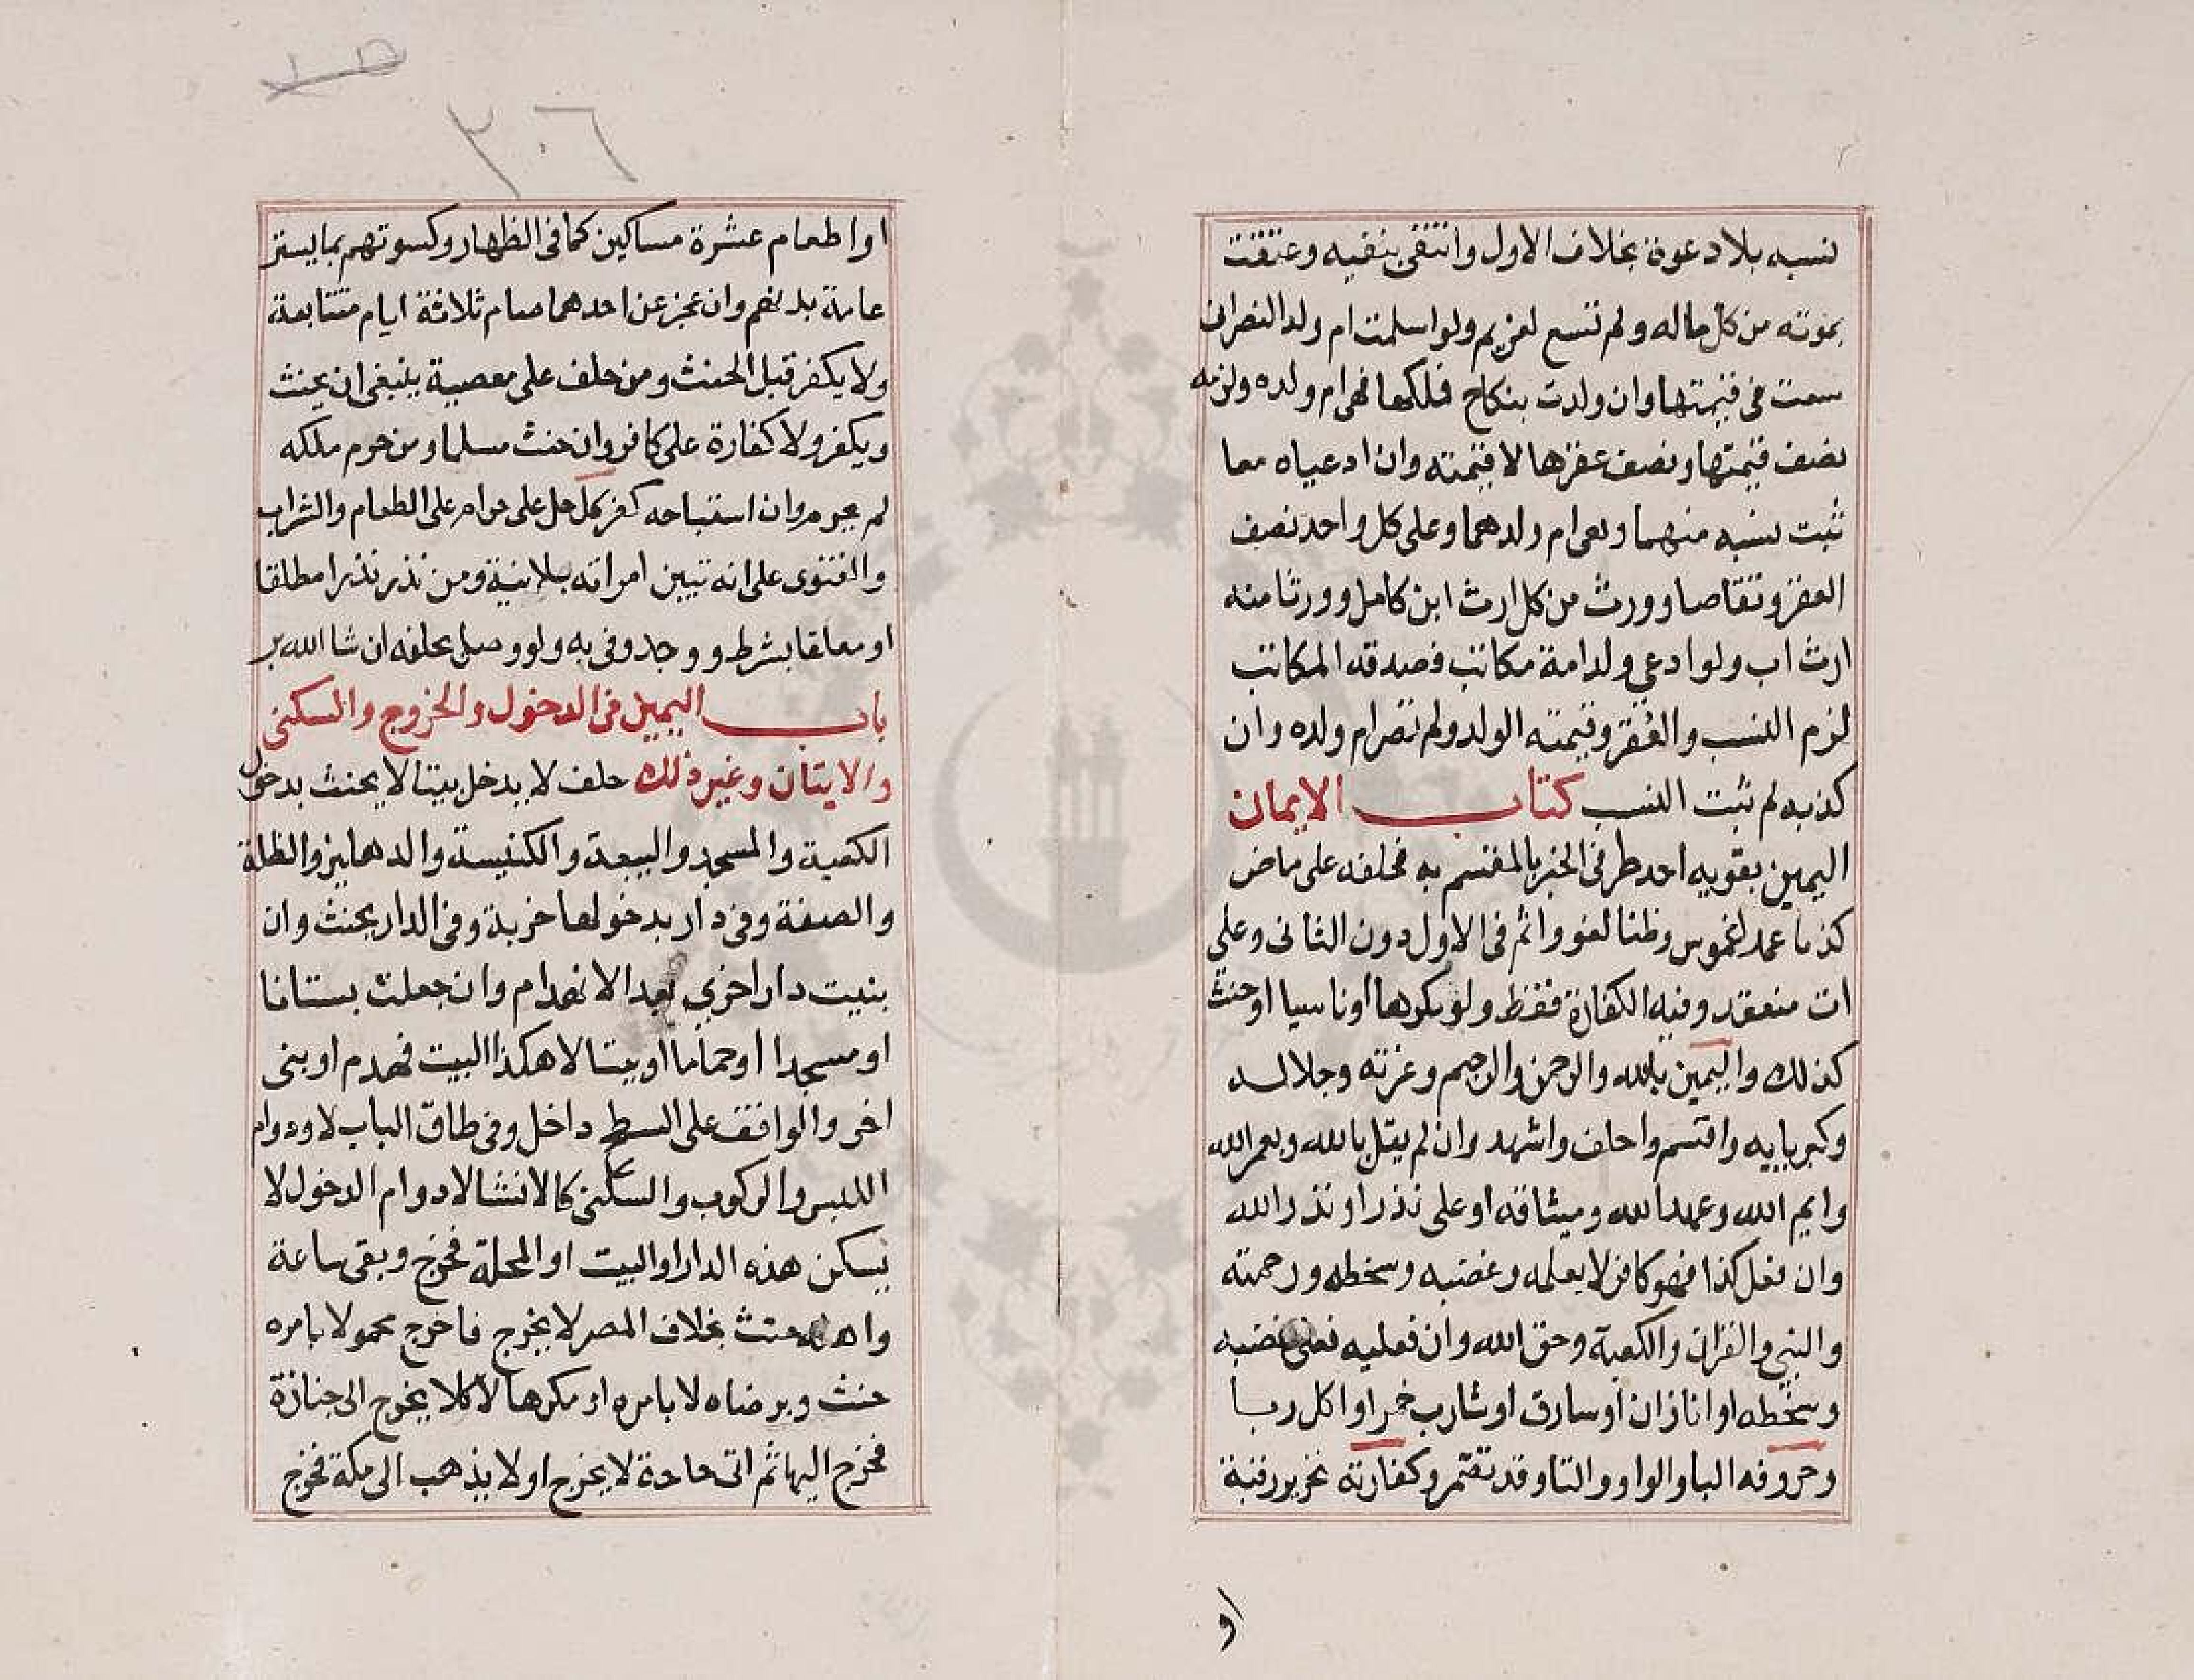 نسبه بلا دعوة بخلاف الاول وانتفى بنفيه وعتقت
بموته من كل ماله ولم تسع لغريم ولو اسلمت ام ولد النصراني
سعت في قيمتها وان ولدت بنكاح فملكها فهي ام ولده ولزمه
نصف قيمتها ونصف عقرها لا قيمته وان ادعياه معا
ثبت نسبه منهما وهي ام ولدهما وعلى كل واحد نصف
العقر وتقاصا وورث من كل ارث ابن كامل وورثا منه
ارث اب ولو ادعي ولد امة مكاتب فصدقه المكاتب
لزم النسب والعقر وقيمته الولد ولم تصر ام ولده وان
كذبه لم يثبت النسب كتاب الايمان
اليمين بقويه احد طرفي الخبر بالمقسم به فحلفه على ماض
كذبا عمدا غموس وظنا لغو واثم في الاول دون الثاني وعلى
ات منعقد وفيه الكفارة فقط ولو مكرها او ناسيا او حنث
كذلك واليمين بالله والرحمن والرحيم وعزته وجلاله
وكبريايه واقسم واحلف واشهد وان لم يقل بالله ولعمر الله
وايم الله وعهد الله وميثاقه او على نذر او نذر الله
وان فعل كذا فهو كافر لا بعلمه وغضبه وسخطه ورحمته
والنبي والقران والكعبة وحق الله وان فعليه فعلى غضبه
وسخطه او انا زان او سارق او شارب خمر او اكل ربا
وحروفه البا والواو والتا وقد تضمر وكفارته تحرير رقبة
او
٣٠٦
او اطعام عشرة مساكين كما في الظهار وكسوتهم بما يستر
عامة بدنهم وان عجز عن احدهما صام ثلاثة ايام متتابعة
ولا يكفر قبل الحنث ومن حلف على معصية ينبغي ان يحنث
ويكفر ولا كفارة على كافر وان حنث مسلما ومن حرم ملكه
لم يحرم وان استباحه كفر كل حل على حرام على الطعام والشراب
والفتوى على انه تبين امراته بلا نية ومن نذر نذرا مطلقا
او معلقا بشرط ووجد وفى به ولو وصل بحلفه ان شا الله بر
باب اليمين في الدخول والخروج والسكنى
والايتان وغير ذلك حلف لا يدخل بيتا لا يحنث بدخول
الكعبة والمسجد والبيعة والكنيسة والدهليز والظلة
والصفة وفي دار بدخولها خربة وفي الدار يحنث وان
بنيت دار اخري بعد الانهدام وان جعلت بستانا
او مسجدا او حماما او بيتا لا هكذا البيت فهدم او بنى
اخر والواقف على السطح داخل وفي طاق الباب لا ودوام
اللبس والركوب والسكنى كالانشا لا دوام الدخول لا
يسكن هذه الدار او البيت او المحلة فخرج وبقى ساعة
واهله حنث بخلاف المصر لا يخرج فاخرج محمولا بامره
حنث وبرضاه لا بامره او مكرها لا كلا يخرج الى جنازة
فخرج اليها ثم اتى حاجة لا يخرج او لا يذهب الى مكة فخرج